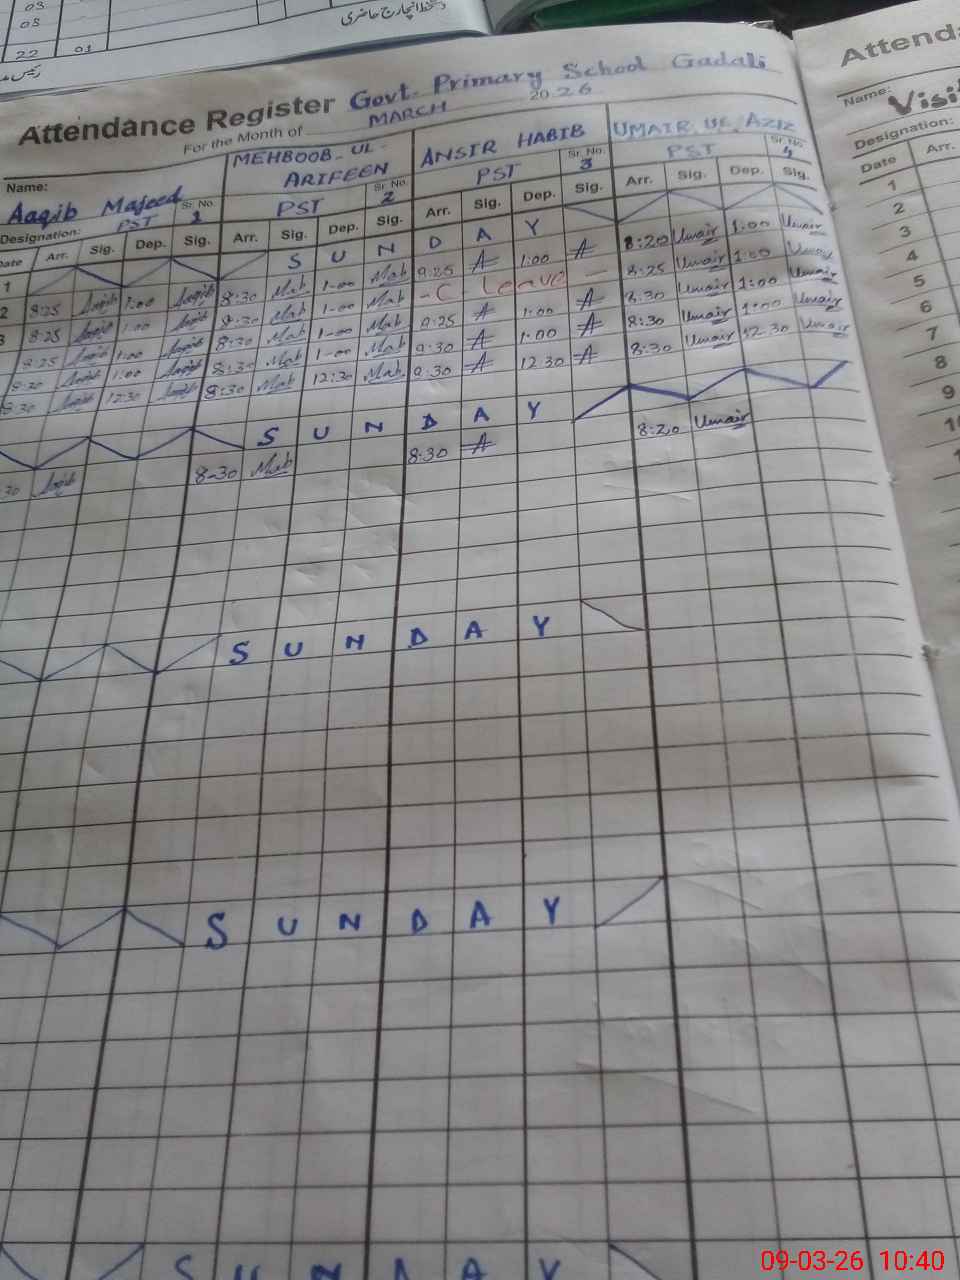 03
03
22 03
دستخط انچارج حاضری
Attendance Register Govt. Primary School Gadali
For the Month of MARCH 2026
Name: Aaqib Majeed MEHBOOB-UL-ARIFEEN ANSIR HABIB UMAIR UL AZIZ
Designation: PST Sr. No. 1 PST Sr. No. 2 PST Sr. No. 3 PST Sr. No. 4
Date Arr. Sig. Dep. Sig. Arr. Sig. Dep. Sig. Arr. Sig. Dep. Sig. Arr. Sig. Dep. Sig.
1 S U N D A Y
2 8:25 Aaqib 1:00 Aaqib 8:30 Mab 1-00 Mab 9:25 A 1:00 A 8:20 Umair 1:00 Umair
3 8:25 Aaqib 1:00 Aaqib 8:30 Mab 1-00 Mab -C Leave - 8:25 Umair 1:00 Umair
8:25 Aaqib 1:00 Aaqib 8:30 Mab 1-00 Mab 9:25 A 1:00 A 8:30 Umair 1:00 Umair
8:30 Aaqib 1:00 Aaqib 8:30 Mab 1-00 Mab 9:30 A 1:00 A 8:30 Umair 1:00 Umair
8:30 Aaqib 12:30 Aaqib 8:30 Mab 12:30 Mab 9:30 A 12:30 A 8:30 Umair 12:30 Umair
S U N D A Y
30 Aaqib 8-30 Mab 8:30 A 8:20 Umair
S U N D A Y
S U N D A Y
S U N D A Y
Attenda
Name: Visi
Designation:
Date Arr.
1
2
3
4
5
6
7
8
9
10
09-03-26 10:40